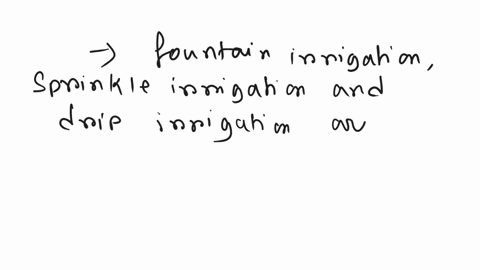 → fountain irrigation,
Sprinkle irrigation and
drip irrigation ar